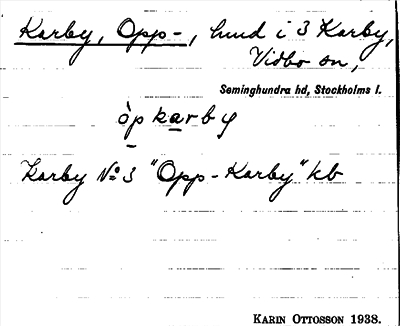 Karby, Opp-, hmd i 3 Karby,
Vidbo sn,
Seminghundra hd, Stockholms l.
òpkarby
Karby No 3 "Opp-Karby" kb
KARIN OTTOSSON 1938.